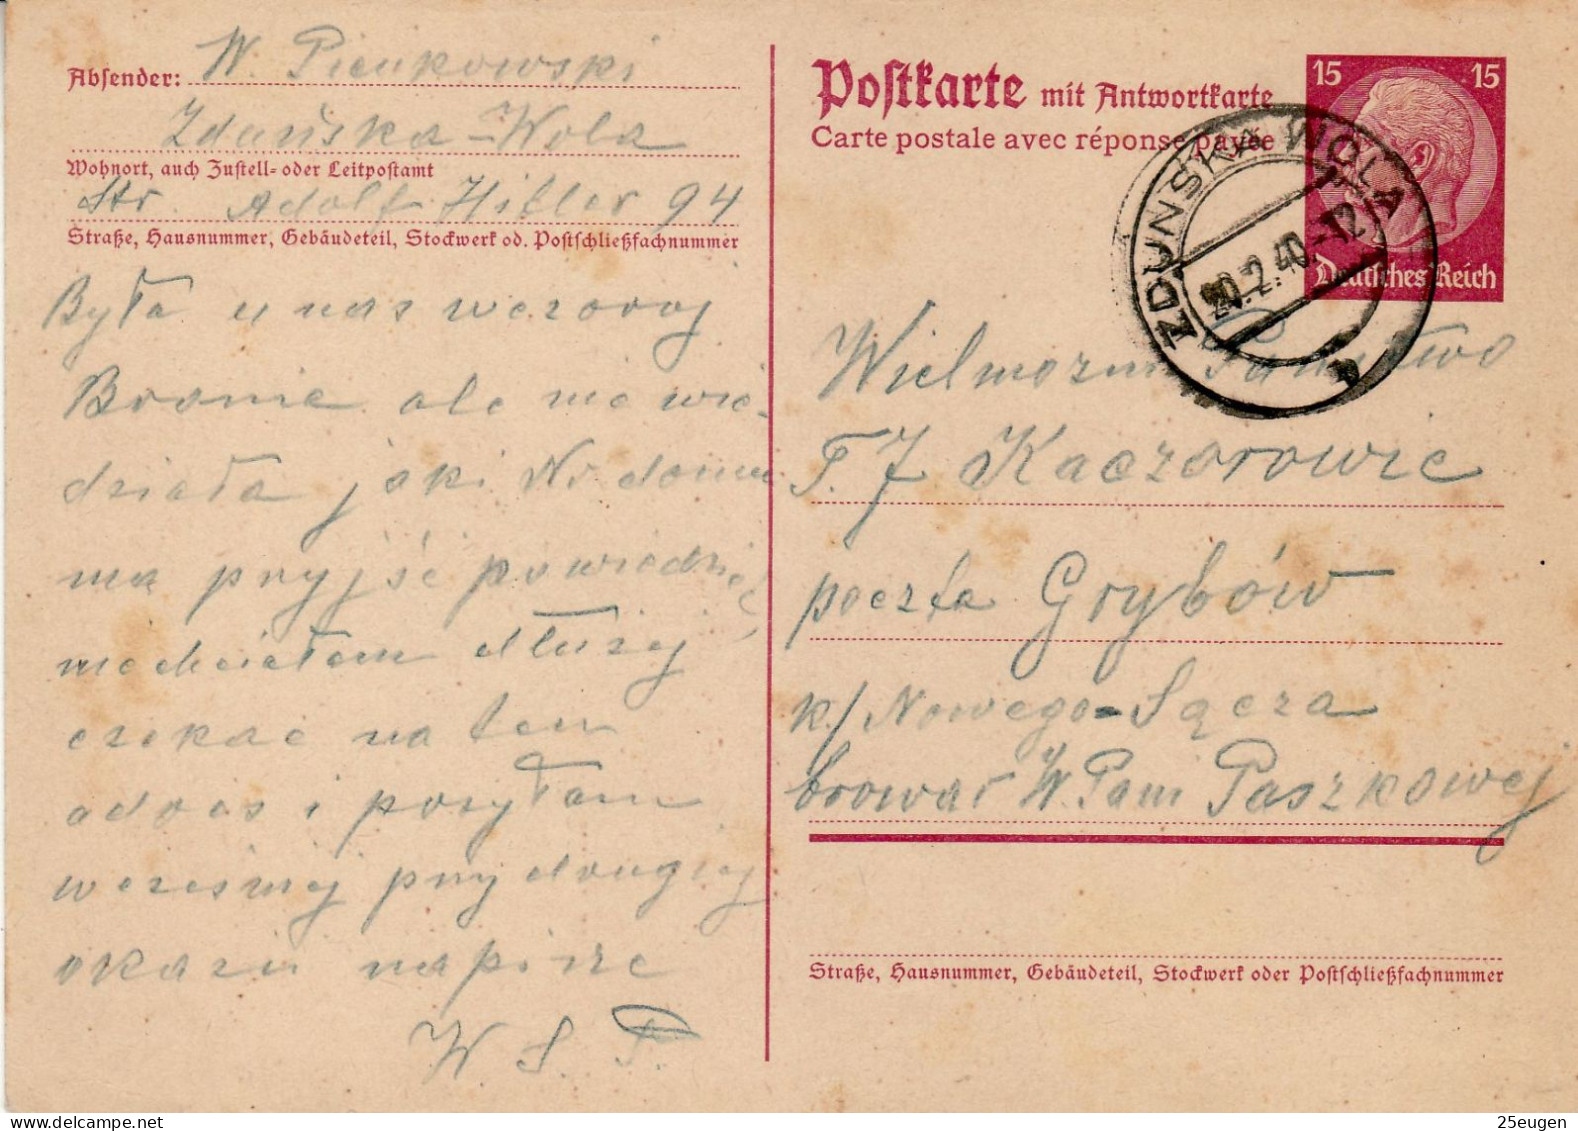 Absender: W. Pieńkowski
Zduńska-Wola
Wohnort, auch Zustell- oder Leitpostamt
Str. Adolf Hitler 94
Straße, Hausnummer, Gebäudeteil, Stockwerk od. Postschließfachnummer
Była u nas wczoraj
Bronia ale nie wie-
działa jaki Nr domu
ma przyjść powiedzieć
niechciałam dłużej
czekać na ten
adres i posyłam
wcześniej przy drugiej
okazii napisze
W S. P.
Postkarte mit Antwortkarte
Carte postale avec réponse payée
15 15
Deutsches Reich
ZDUNSKA WOLA
20.2.40.-12
Wielmożni Państwo
F. J Kaczorowie
poczta Grybów
k/ Nowego-Sącza
browar W. Pani Paszkowej
Straße, Hausnummer, Gebäudeteil, Stockwerk oder Postschließfachnummer
25eugen